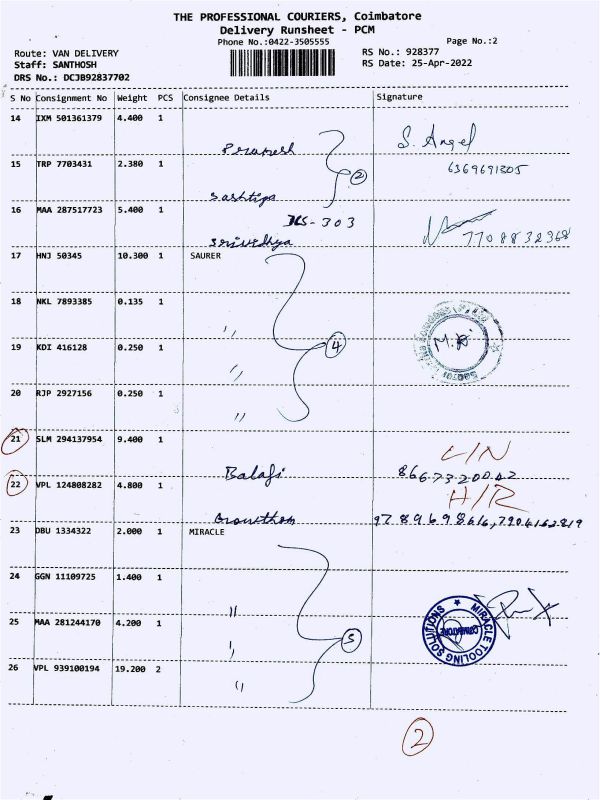 THE PROFESSIONAL COURIERS, Coimbatore
Delivery Runsheet - PCM
Phone No.:0422-3505555
Page No.:2
Route: VAN DELIVERY
RS No.: 928377
Staff: SANTHOSH
RS Date: 25-Apr-2022
DRS No.: DCJB92837702
S No Consignment No Weight PCS Consignee Details Signature
14 IXM 501361379 4.400 1
S. Angel
Pramesh
15 TRP 7703431 2.380 1
6369691305
2
Sashtipa
16 MAA 287517723 5.400 1
303
7708832368
Srividhya
17 HNJ 50345 10.300 1 SAURER
18 NKL 7893385 0.135 1
"
19 KDI 416128 0.250 1
4
"
20 RJP 2927156 0.250 1
"
21 SLM 294137954 9.400 1
L/N
Balaji
8667320042
22 VPL 124808282 4.800 1
H/R
Gowtham
9789698616, 7904162819
23 DBU 1334322 2.000 1 MIRACLE
24 GGN 11109725 1.400 1
"
25 MAA 281244170 4.200 1
MIRACLE TOOLING SOLUTIONS
COIMBATORE
5
"
26 VPL 939100194 19.200 2
"
2